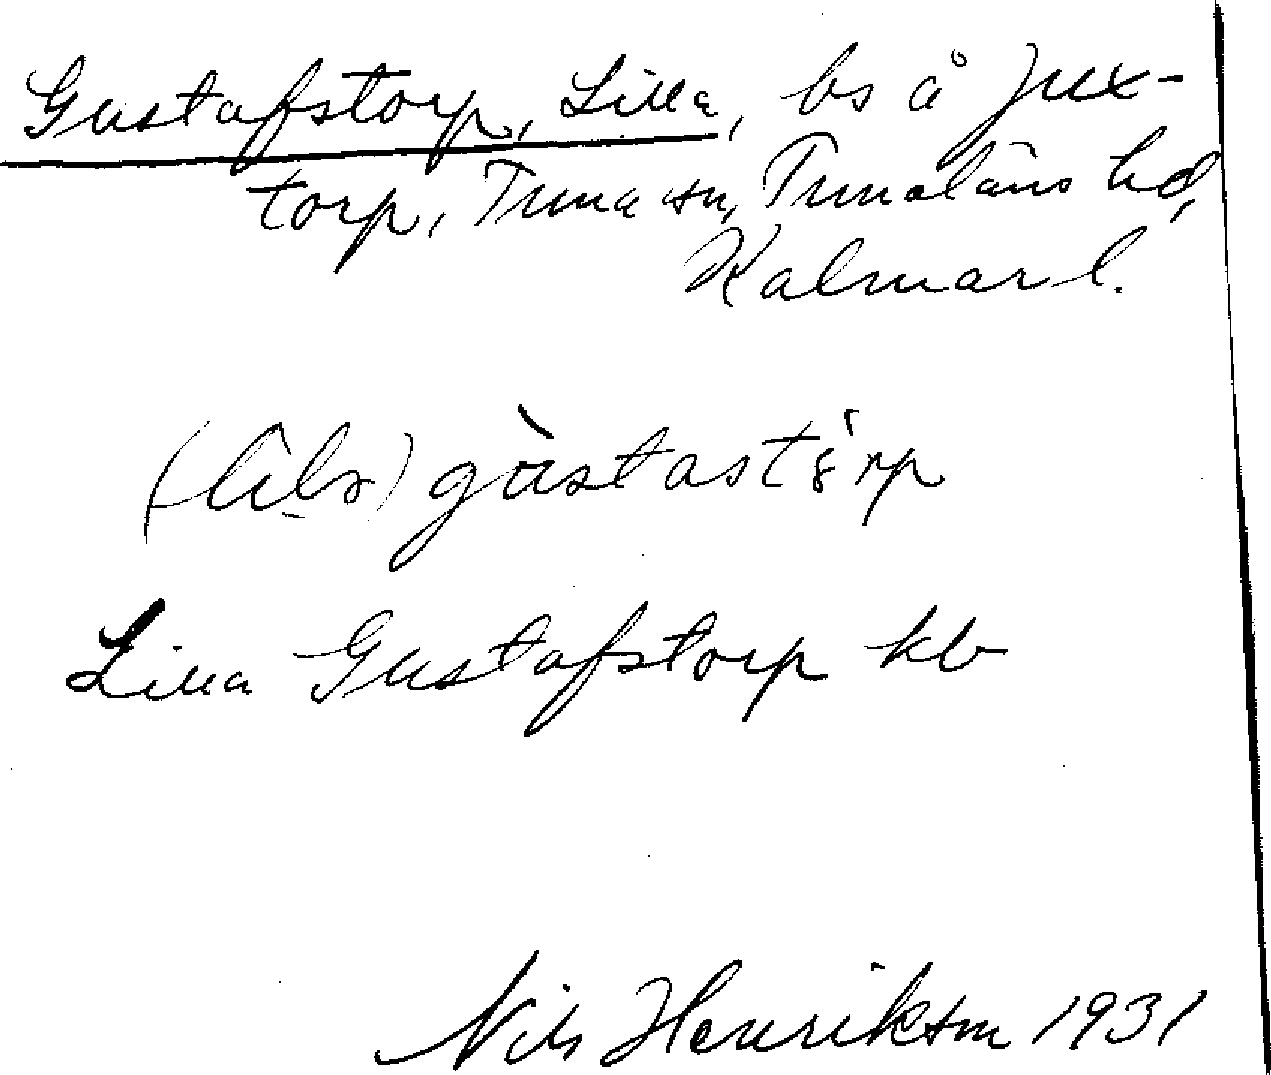 Gustafstorp, Lilla, bs å Jux-
torp, Tuna sn, Tunaläns hd,
Kalmar l.
gàstast
Lilla Gustafstorp kb
Nils Henrikson 1931